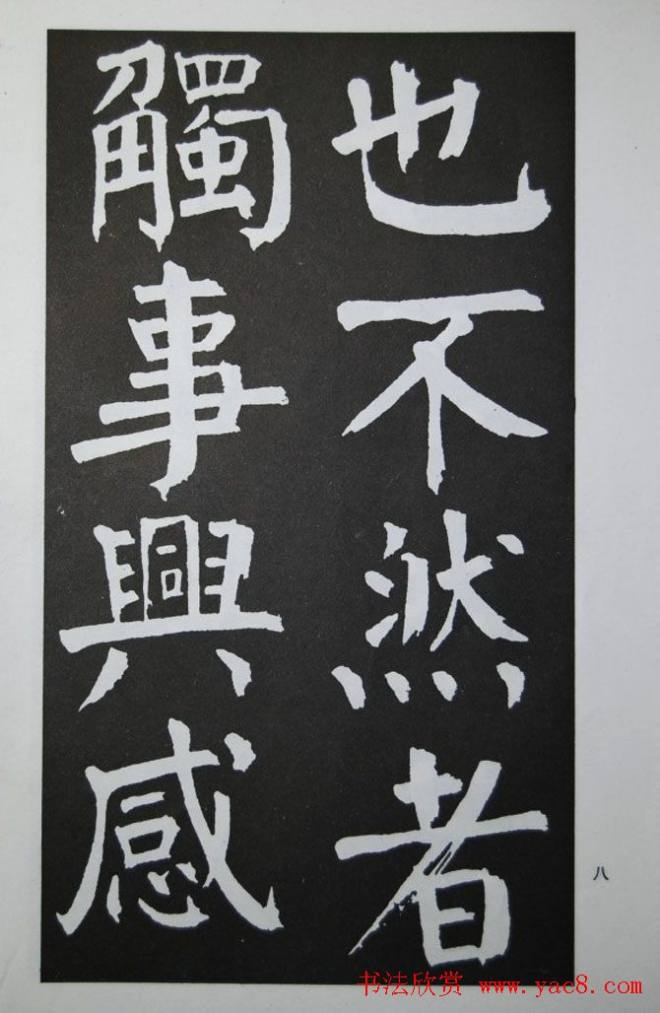 也不然者
觸事興感
八
书法欣赏 www.yac8.com